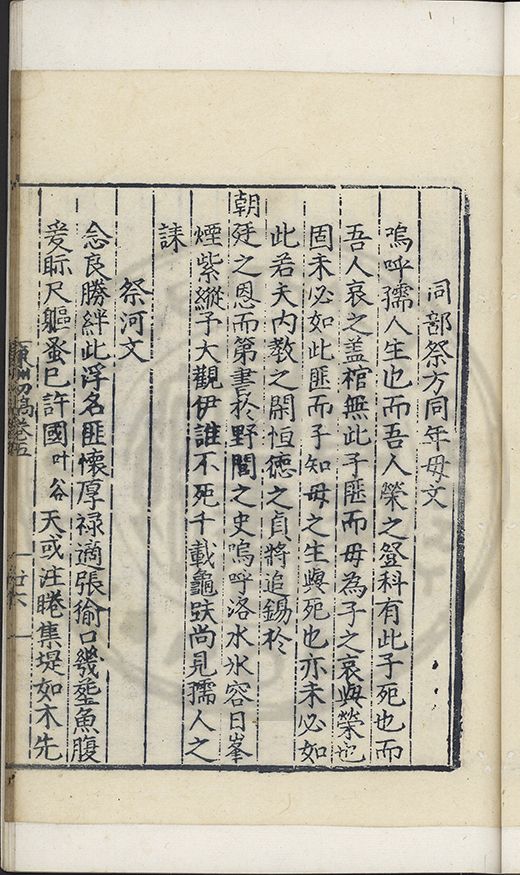 同部祭方同年母文
嗚呼孺人生也而吾人榮之登科有此子死也而
吾人哀之盖棺無此子匪而母為子之哀與榮也
固未必如此匪而子知母之生與死也亦未必如
此若夫内教之閑恒德之貞將追錫於
朝廷之恩而第書於野閭之史嗚呼洛水氷容日峯
煙紫縱子大觀伊誰不死千載龜趺尚見孺人之
誄
祭河文
念良勝絆此浮名匪懷厚禄適張揄口幾塟魚腹
爰眎尺軀蚤已許國叶谷天或注睠集堤如木先
初稿卷五